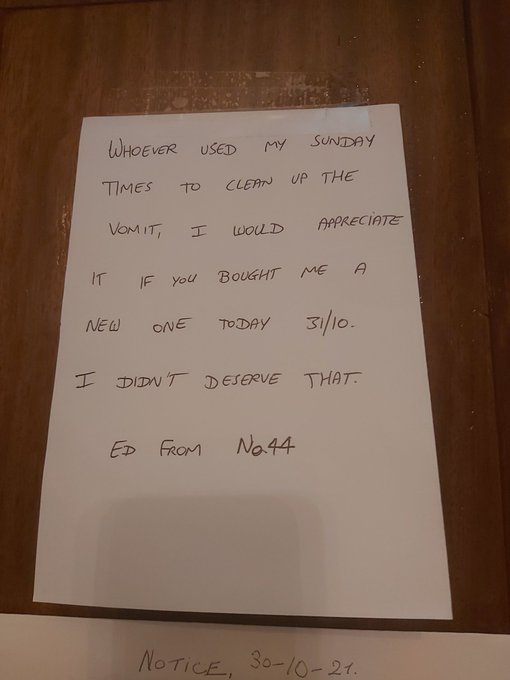 WHOEVER USED MY SUNDAY
TIMES TO CLEAN UP THE
VOMIT, I WOULD APPRECIATE
IT IF YOU BOUGHT ME A
NEW ONE TODAY 31/10.
I DIDN'T DESERVE THAT.
ED FROM No.44
NOTICE, 30-10-21.